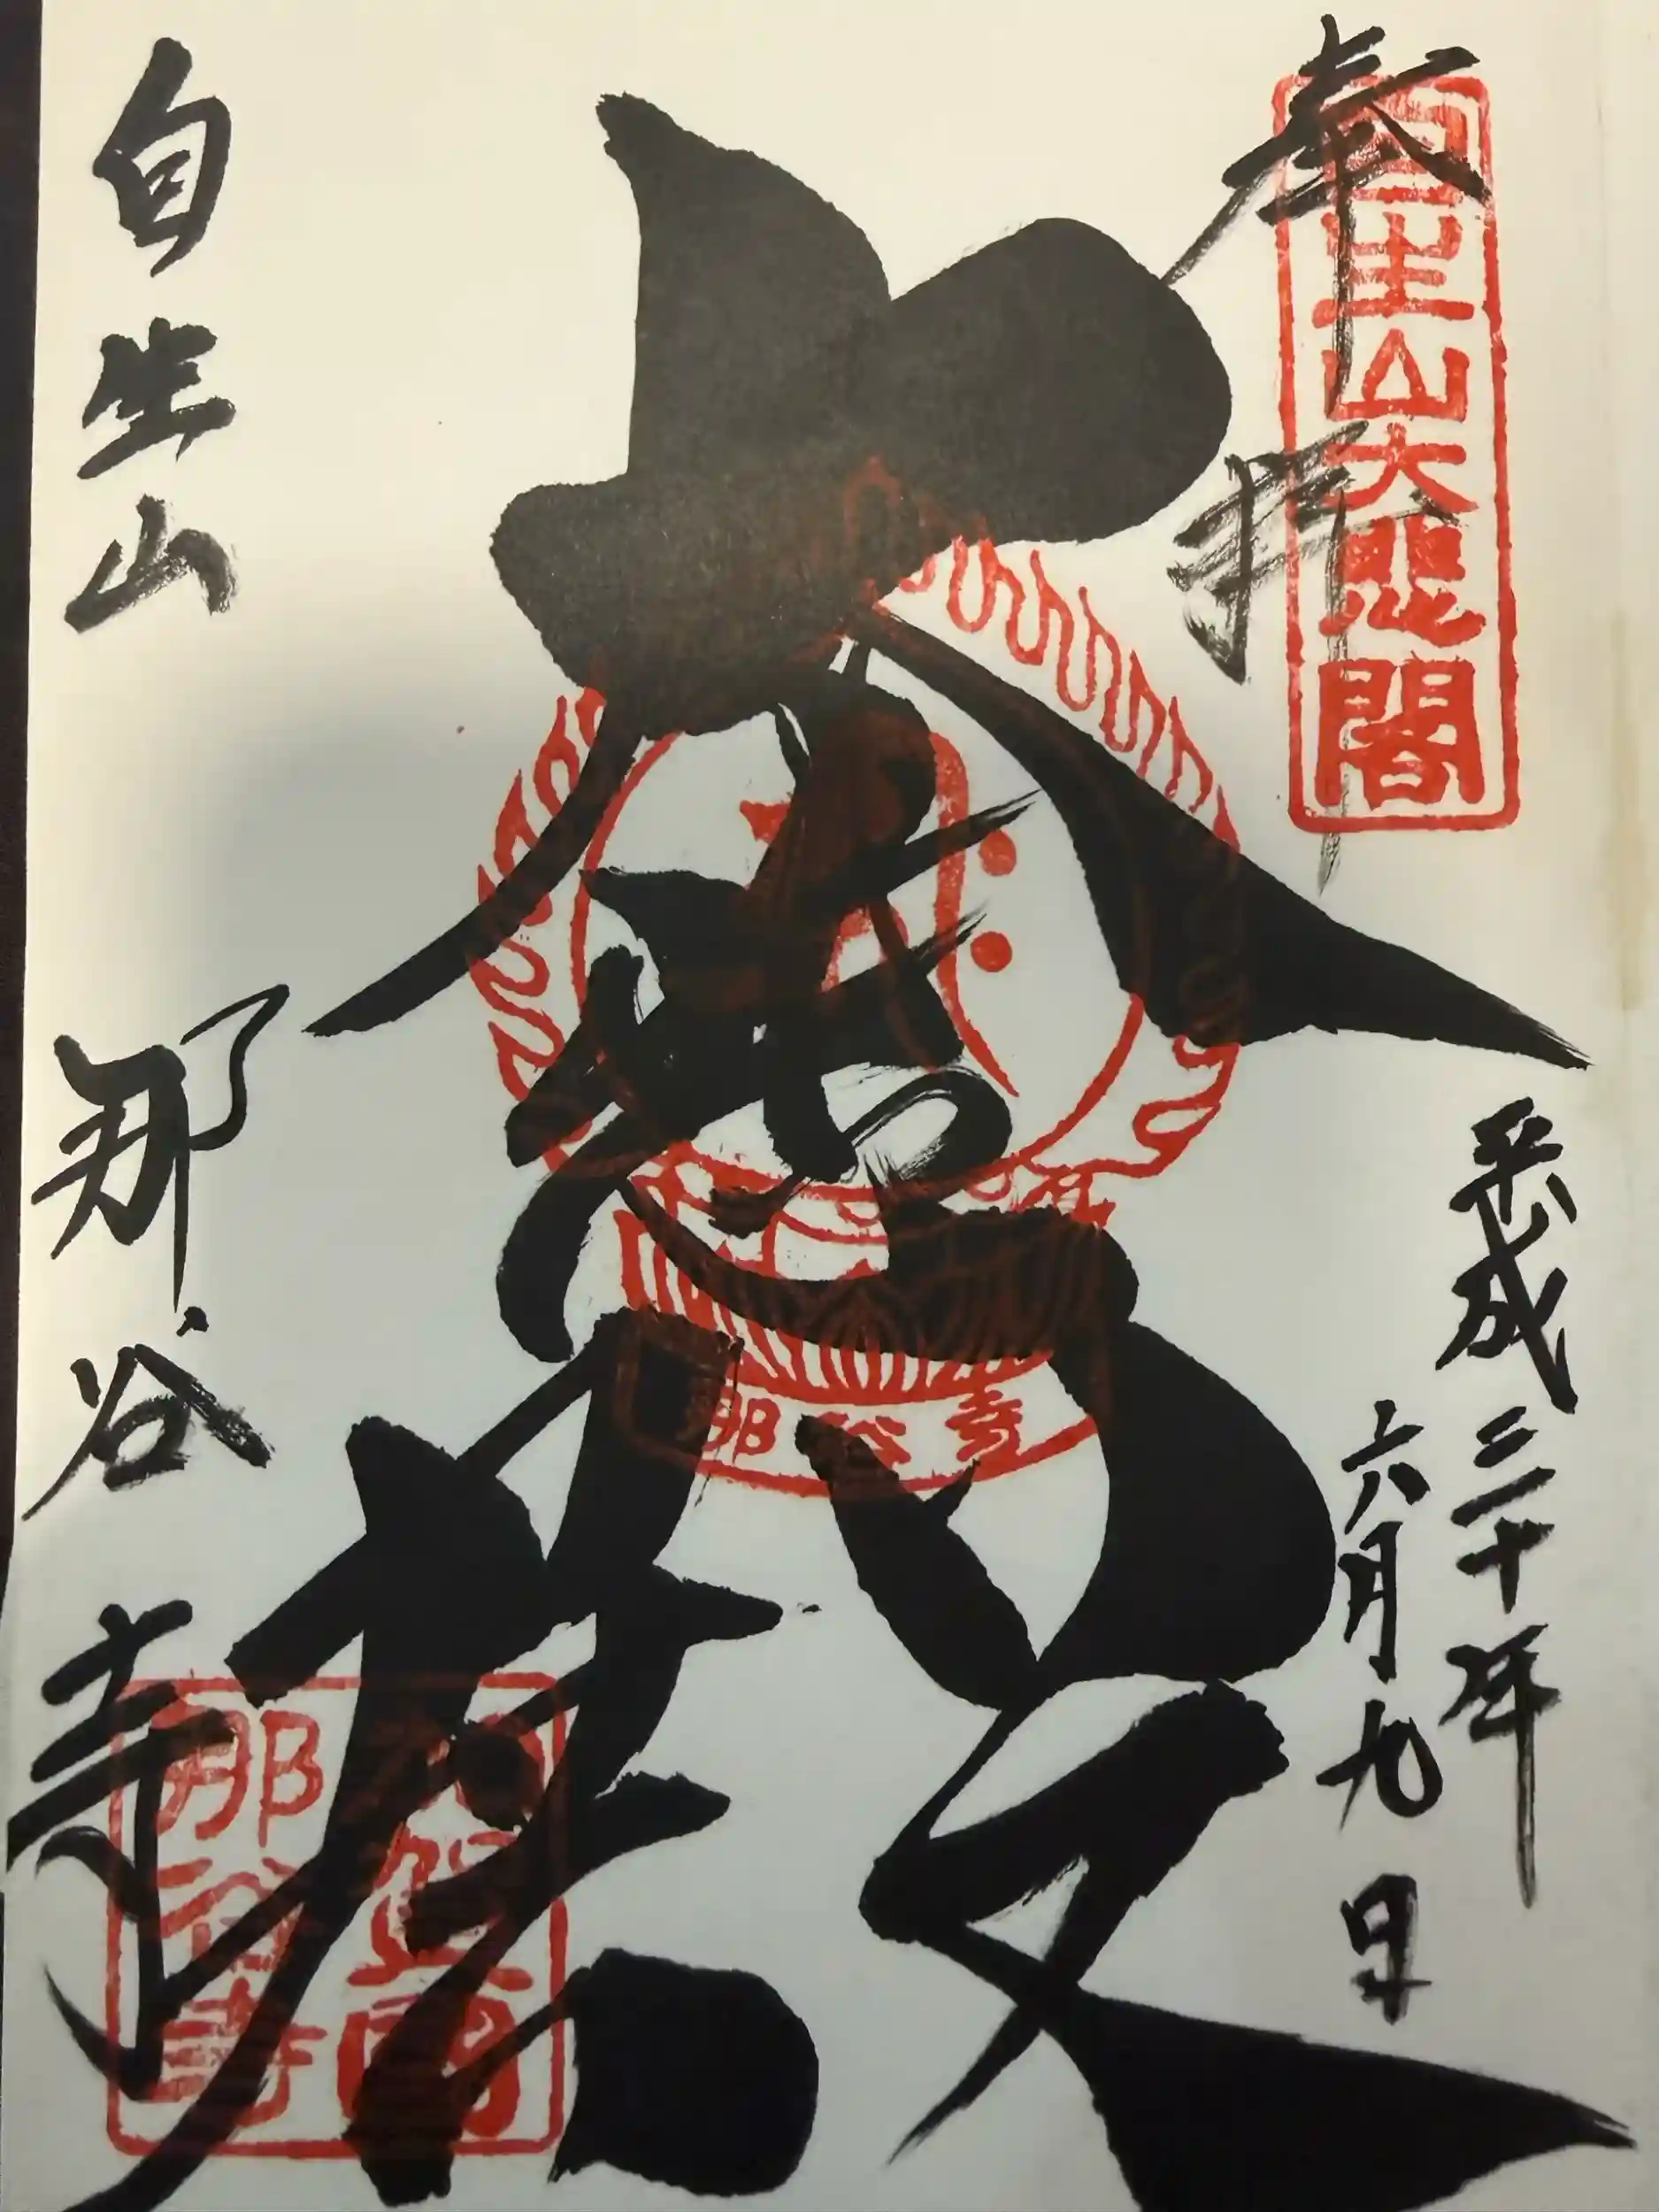 奉拝
自生山大悲閣
平成三十年
六月九日
大悲殿
那谷寺
自生山
那谷寺
加賀国
那谷寺